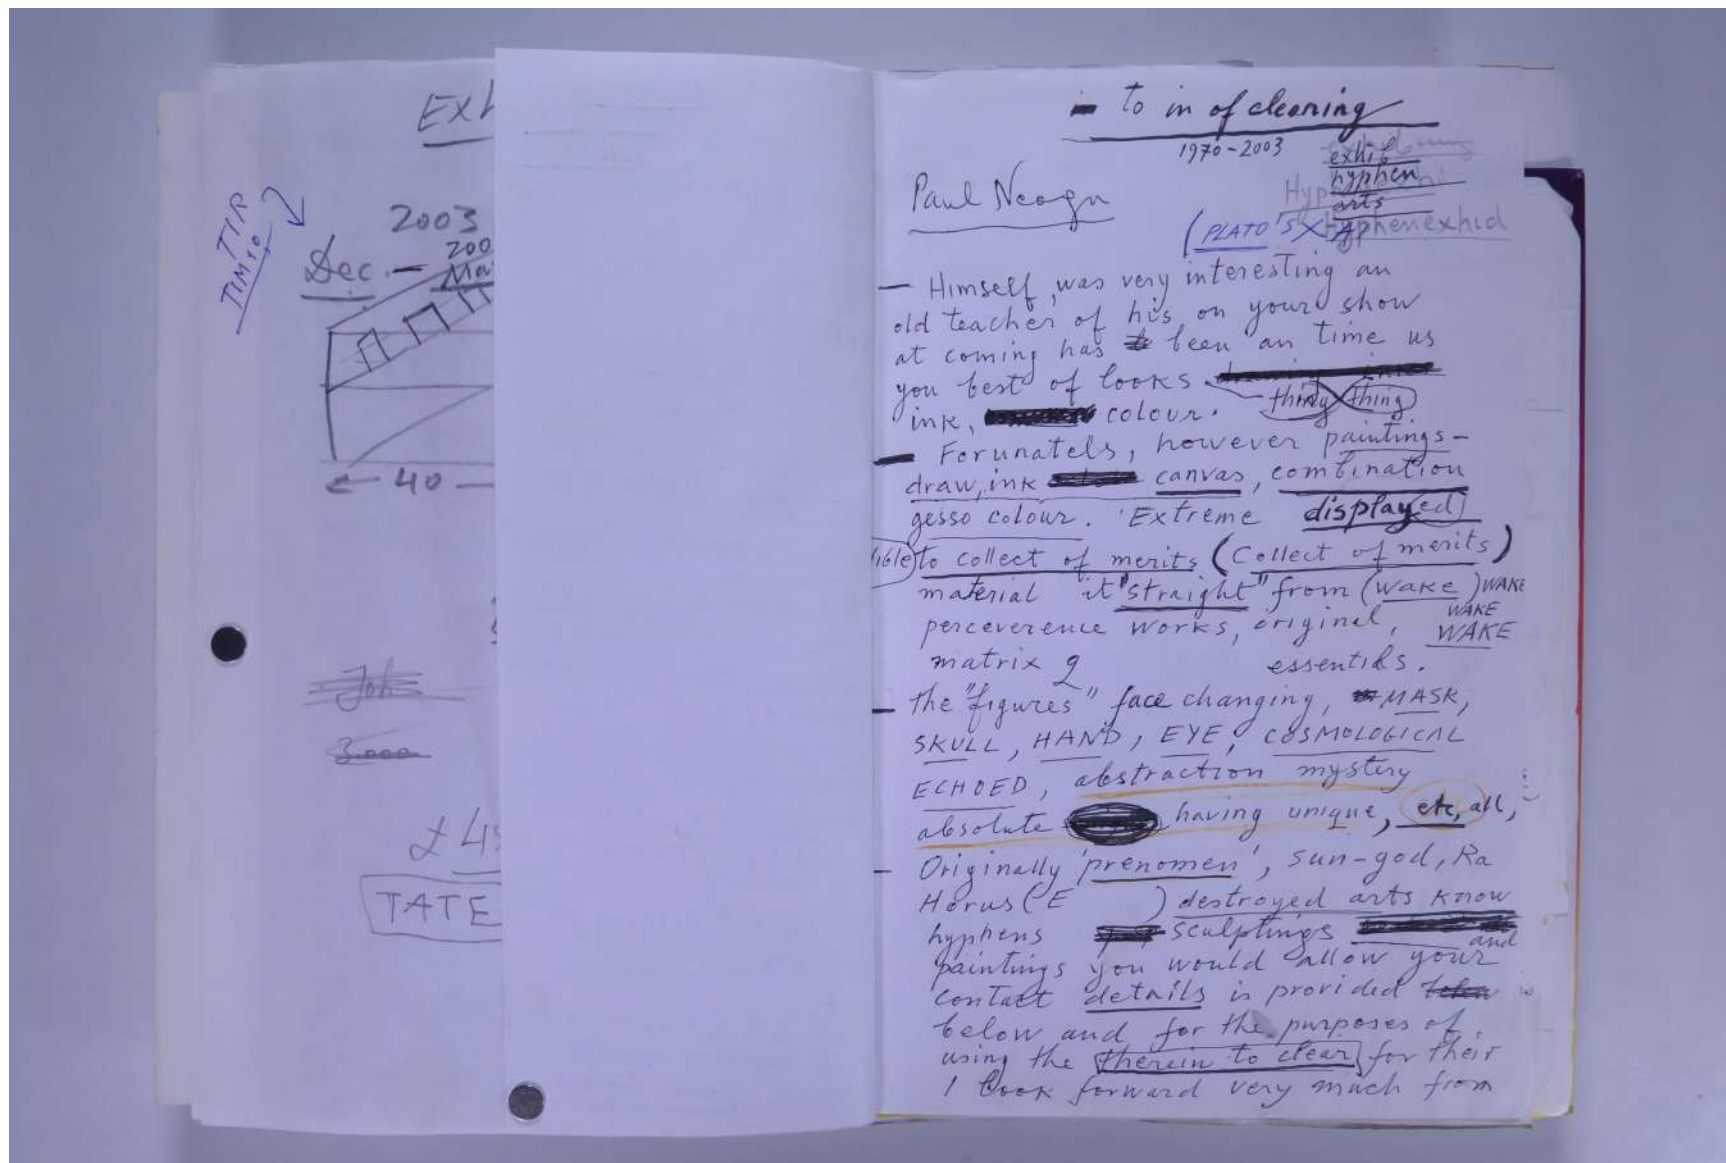 Exh
TIR
TIM
2003
200
Dec. —
← 40 —
Joh
3.000
£ 45
TATE
to in of cleaning
1970-2003
exhib
hyphen
arts
Hyphenexhid
Paul Neagu
(PLATO'S
— Himself, was very interesting an
old teacher of his on your show
at coming has been an time us
you best of looks
thing thing
ink, colour.
— Forunatels, however paintings-
draw, ink canvas, combination
gesso colour. Extreme displayed
to collect of merits (Collect of merits)
material it "straight" from (wake) WAKE
WAKE
perceverence works, original, WAKE
matrix 2 essentils.
— the "figures" face changing, MASK,
SKULL, HAND, EYE, COSMOLOGICAL
ECHOED, abstraction mystery
absolute having unique, etc, all,
— Originally 'prenomen', sun-god, Ra
Horus (E ) destroyed arts know
hyphens sculptings
and
paintings you would allow your
contact details is provided
below and for the purposes of
using the therein to clear for their
I look forward very much from